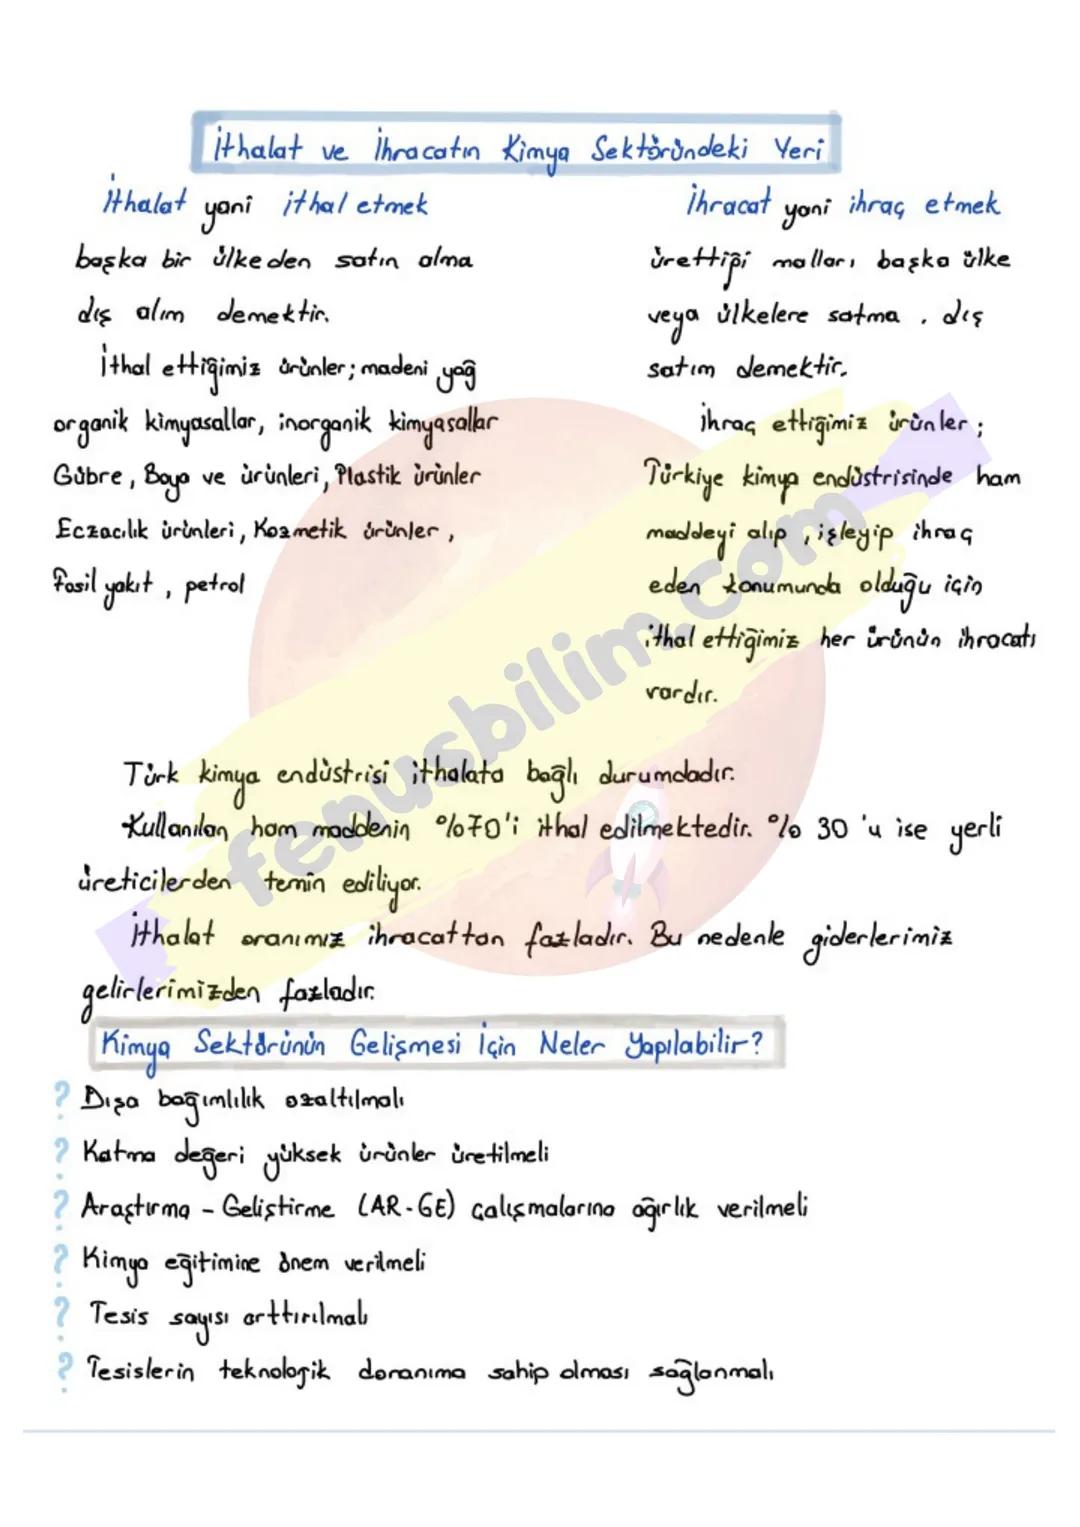 İthalat ve İhracatın Kimya Sektöründeki Yeri
İthalat yani ithal etmek
başka bir ülkeden satın alma
dış alım demektir.
İthal ettiğimiz ürünler; madeni yağ
organik kimyasallar, inorganik kimyasallar
Gübre, Boya ve ürünleri, Plastik ürünler
Eczacılık ürünleri, Kozmetik ürünler,
Fosil yakıt, petrol
İhracat yani ihraç etmek
ürettiği malları başka ülke
veya ülkelere satma, dış
satım demektir.
İhraç ettiğimiz ürünler;
Türkiye kimya endüstrisinde ham
maddeyi alıp, işleyip ihraç
eden konumunda olduğu için
ithal ettiğimiz her ürünün ihracatı
vardır.
Türk kimya endüstrisi ithalata bağlı durumdadır.
Kullanılan ham maddenin %70'i ithal edilmektedir. %30'u ise yerli
üreticilerden temin ediliyor.
İthalat oranımız ihracattan fazladır. Bu nedenle giderlerimiz
gelirlerimizden fazladır.
fenusbilim.com
Kimya Sektörünün Gelişmesi İçin Neler Yapılabilir?
? Dışa bağımlılık azaltılmalı
? Katma değeri yüksek ürünler üretilmeli
? Araştırma - Geliştirme (AR-GE) çalışmalarına ağırlık verilmeli
? Kimya eğitimine önem verilmeli
? Tesis sayısı arttırılmalı
? Tesislerin teknolojik donanıma sahip olması sağlanmalı